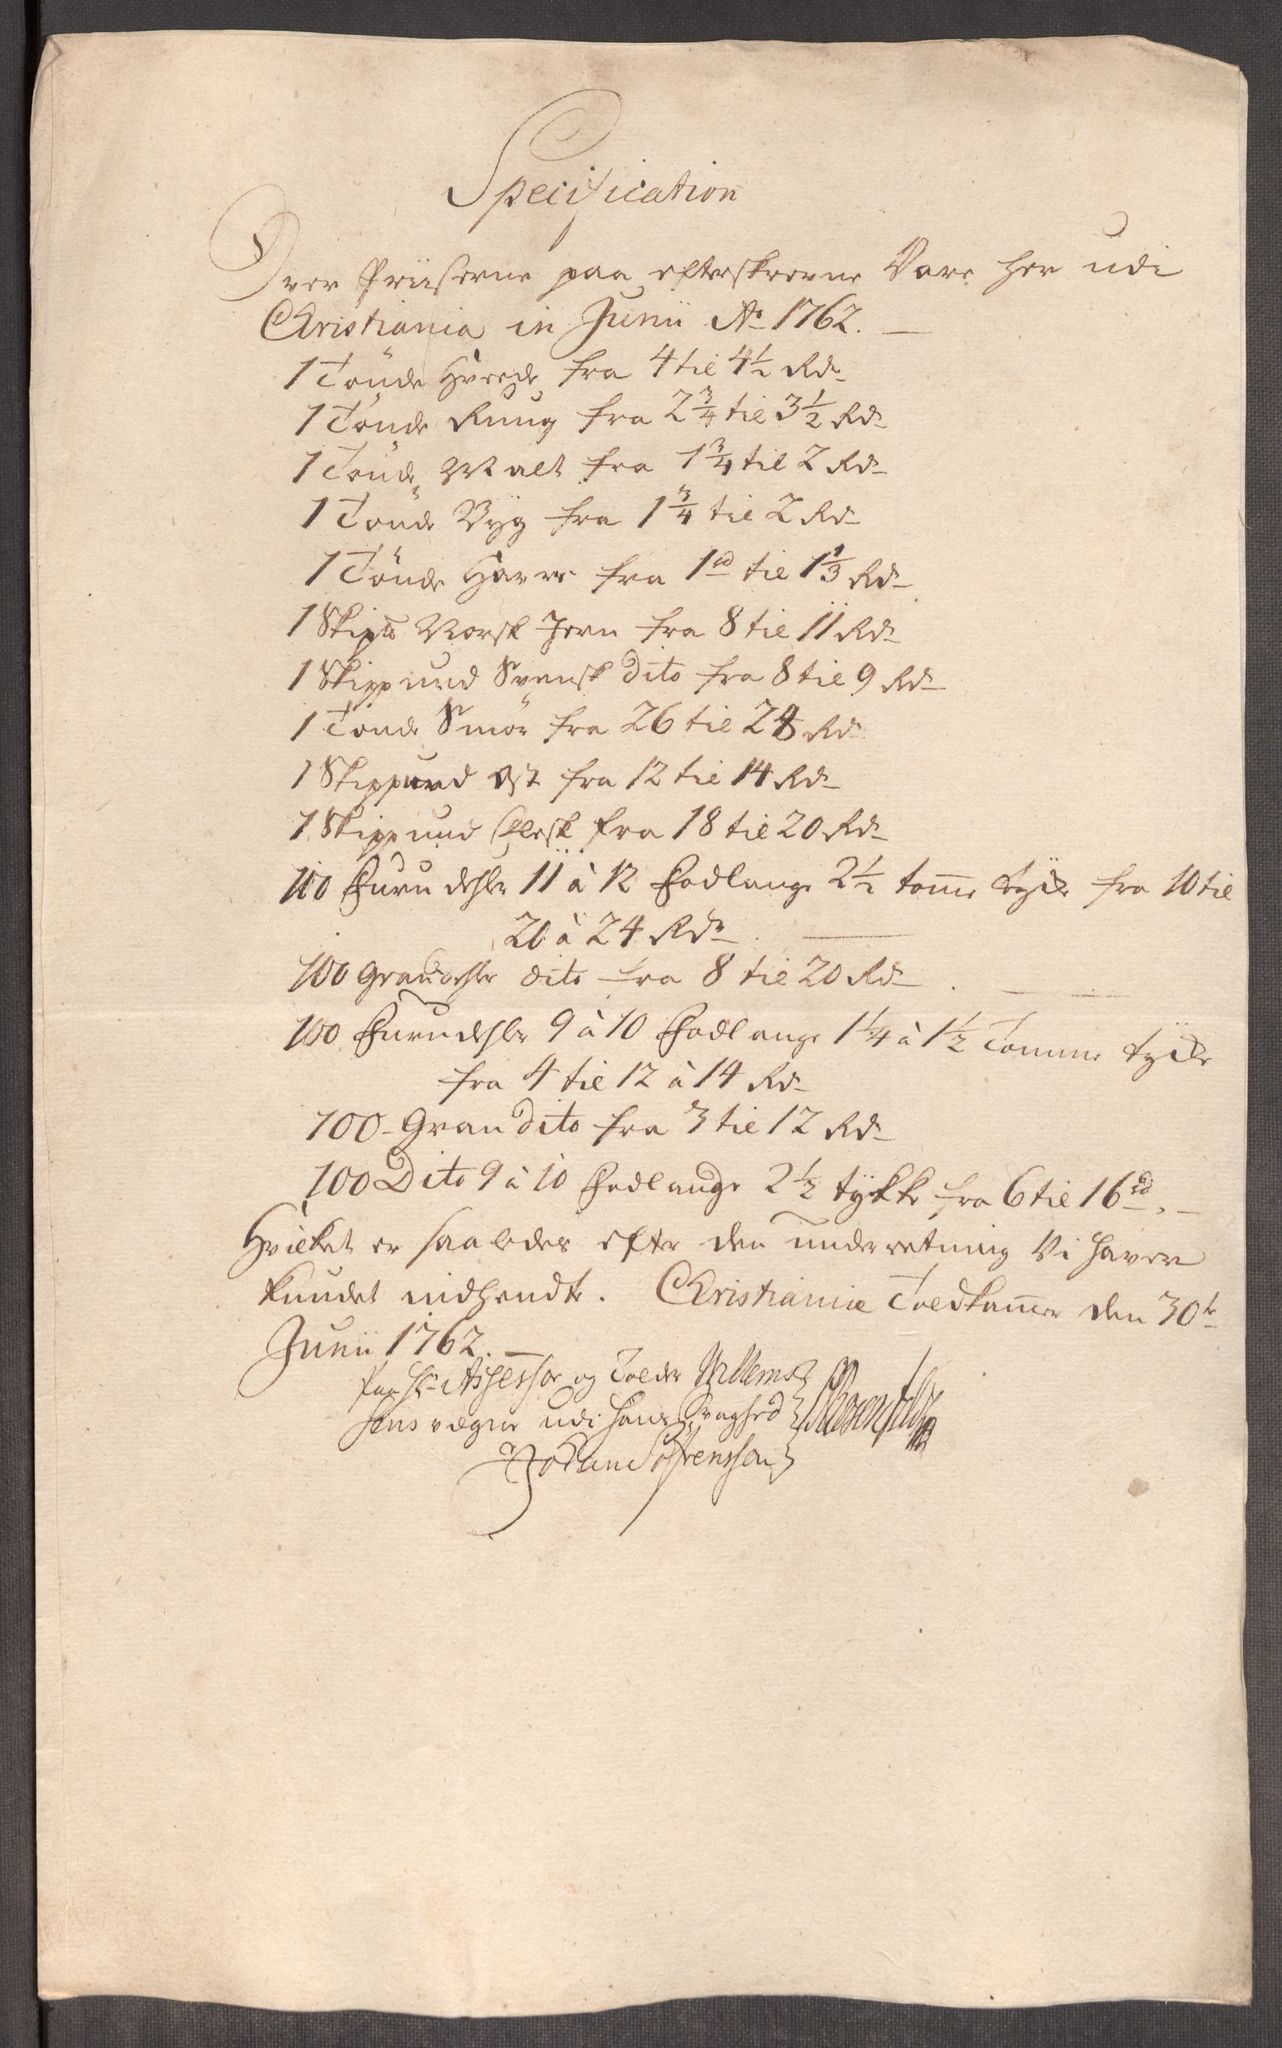 Specification
Over Priiserne paa efterskrevne Vare her udi
Christiania in Junii Ao 1762. —
1 Tönde Hvede fra 4 til 4½ Rdr
1 Tönde Ruug fra 2¾ til 3½ Rdr
1 Tönde Malt fra 1¾ til 2 Rdr
1 Tönde Byg fra 1¾ til 2 Rdr
1 Tönde Havre fra 1 rd til 1⅓ Rdr
1 Skipp Norsk Jern fra 8 til 11 Rdr
1 Skippund Svensk dito fra 8 til 9 Rdr
1 Tönde Smör fra 26 til 28 Rdr
1 Skippund Ost fra 12 til 14 Rdr
1 Skippund Flesk fra 18 til 20 Rdr
100 Furu dehler 11 à 12 Fod lange 2½ tomme tycke fra 10 til
20 à 24 Rdr —
100 Grandehler dito fra 8 til 20 Rdr. —
100 Furu dehler 9 à 10 Fod lange 1¼ à 1½ Tomme tycke
fra 4 til 12 à 14 Rdr
100 Gran dito fra 3 til 12 Rdr
100 Dito 9 à 10 Fod lange 2½ tykke fra 6 til 16 rd. —
Hvilket er saaledes efter den underretning Vi haver
kundet indhendte. Christianie Toldkammer den 30te
Junii 1762. —
Paa Hr Assessor og Tolder Willemsens
vegne udi hans Svaghed Rosenfeldt
Johan Söfrenssen